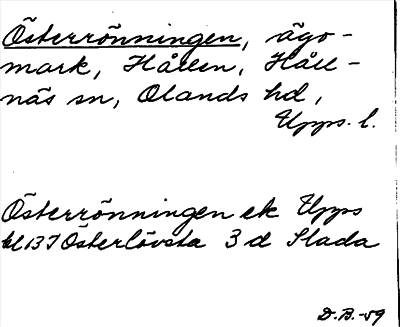 Österrönningen, ägo-
mark, Hållen, Håll-
näs sn, Olands hd,
Upps. l.
Österrönningen ek Upps
bl 137 Österlövsta 3 d Slada
D.B.-59